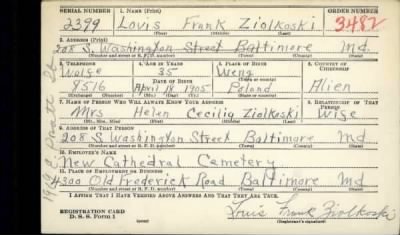 SERIAL NUMBER 1. NAME (Print) ORDER NUMBER
2399 Louis Frank Ziolkoski 3482
(First) (Middle) (Last)
2. ADDRESS (Print)
208 S. Washington Street Baltimore Md.
(Number and street or R. F. D. number) (Town) (County) (State)
3. TELEPHONE 4. AGE IN YEARS 5. PLACE OF BIRTH 6. COUNTRY OF CITIZENSHIP
Wolfe 35 Weng
DATE OF BIRTH (Town or county)
9516 April 18 1905 Poland Alien
(Exchange) (Number) (Mo.) (Day) (Yr.) (State or country)
7. NAME OF PERSON WHO WILL ALWAYS KNOW YOUR ADDRESS 8. RELATIONSHIP OF THAT PERSON
Mrs Helen Cecilia Ziolkoski Wife
(Mr., Mrs., Miss) (First) (Middle) (Last)
9. ADDRESS OF THAT PERSON
208 S. Washington Street Baltimore Md
(Number and street or R. F. D. number) (Town) (County) (State)
10. EMPLOYER'S NAME
New Cathedral Cemetery
11. PLACE OF EMPLOYMENT OR BUSINESS
4300 Old Frederick Road Baltimore Md
(Number and street or R. F. D. number) (Town) (County) (State)
I AFFIRM THAT I HAVE VERIFIED ABOVE ANSWERS AND THAT THEY ARE TRUE.
REGISTRATION CARD
D. S. S. Form 1
Louis Frank Ziolkoski
(Registrant's signature)
Pratt St